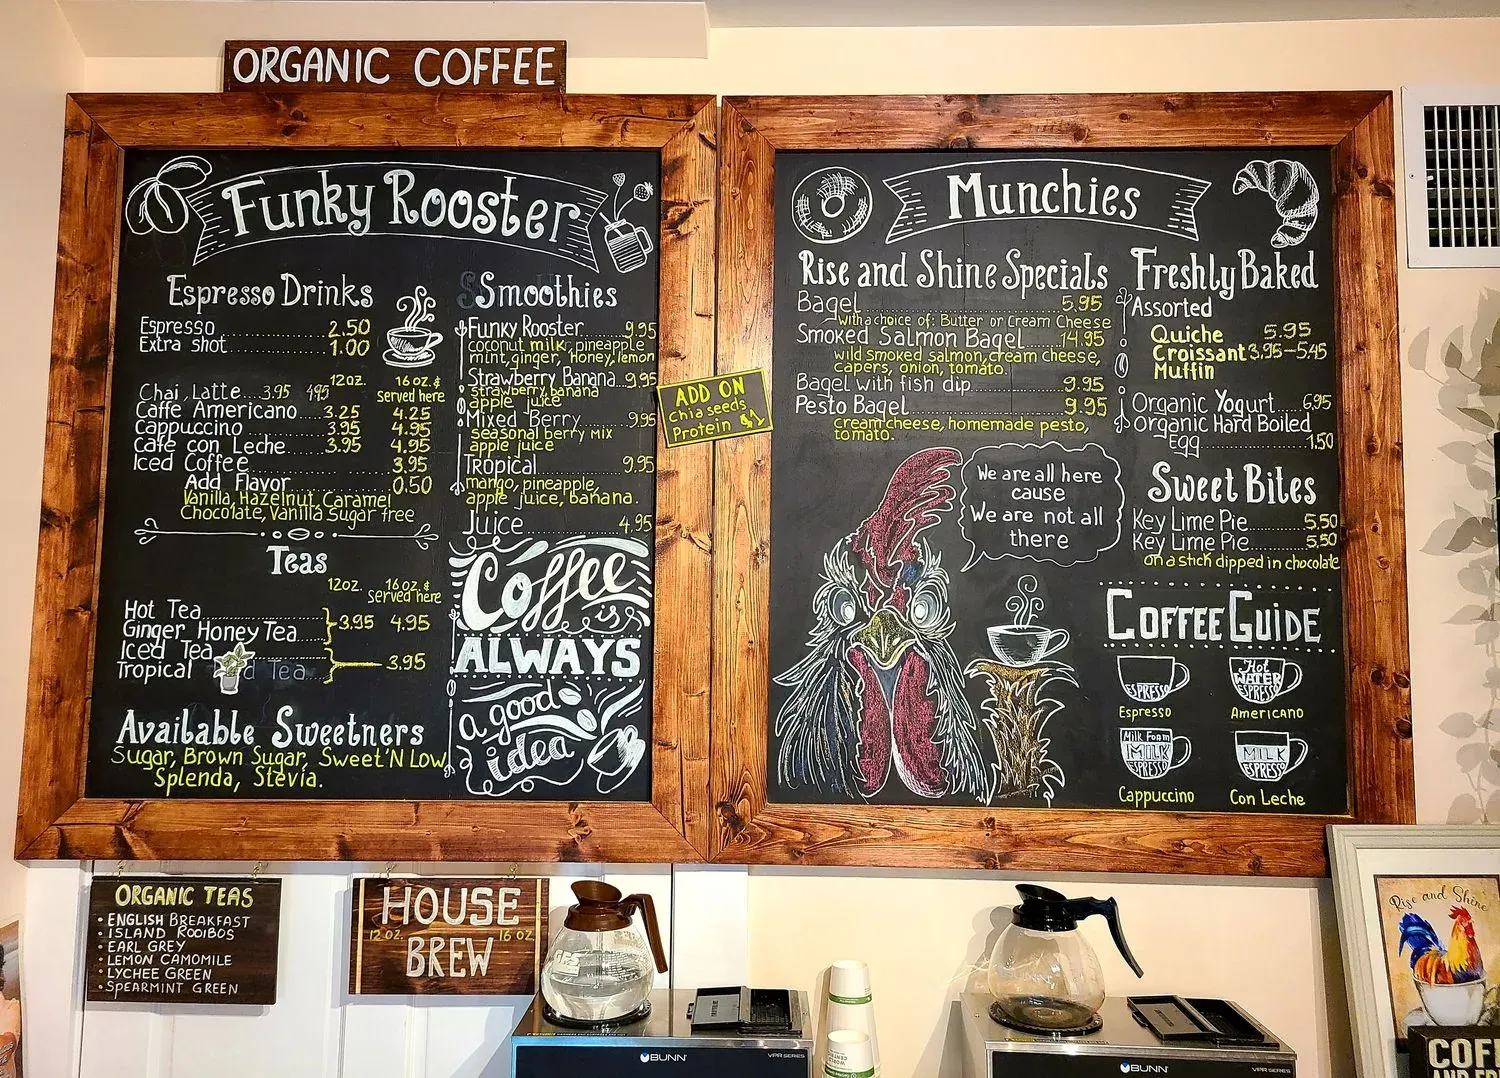 ORGANIC COFFEE
Funky Rooster
Espresso Drinks
Espresso 2.50
Extra shot 1.00
12oz. 16oz. &
Served here
Chai, Latte 3.95 4.95
Caffe Americano 3.25 4.25
Cappuccino 3.95 4.95
Cafe con Leche 3.95 4.95
Iced Coffee 3.95
Add Flavor 0.50
Vanilla, Hazelnut, Caramel
Chocolate, Vanilla Sugar free
Teas
12oz. 16oz. &
Served here
Hot Tea
Ginger, Honey Tea 3.95 4.95
Iced Tea
Tropical d Tea 3.95
Available Sweetners
Sugar, Brown Sugar, Sweet'N Low,
Splenda, Stevia.
Smoothies
Funky Rooster 9.95
coconut milk, pineapple
mint, ginger, honey, lemon
Strawberry Banana 9.95
strawberry, banana
apple juice
Mixed Berry 9.95
seasonal berry mix
apple juice
Tropical 9.95
mango, pineapple,
apple juice, banana.
Juice 4.95
Coffee
is
ALWAYS
a good
idea
ADD ON
Chia seeds
Protein $1
Munchies
Rise and Shine Specials
Bagel 5.95
with a choice of: Butter or Cream Cheese
Smoked Salmon Bagel 14.95
wild smoked salmon, cream cheese,
capers, onion, tomato.
Bagel with fish dip 9.95
Pesto Bagel 9.95
cream cheese, homemade pesto,
tomato.
We are all here
cause
We are not all
there
Freshly Baked
Assorted
Quiche 5.95
Croissant 3.95-5.45
Muffin
Organic Yogurt 6.95
Organic Hard Boiled
Egg 1.50
Sweet Bites
Key Lime Pie 5.50
Key Lime Pie 5.50
on a stick dipped in chocolate
COFFEE GUIDE
ESPRESSO
Espresso
Hot
WATER
ESPRESSO
Americano
Milk Foam
MILK
ESPRESSO
Cappuccino
MILK
ESPRESSO
Con Leche
ORGANIC TEAS
• ENGLISH BREAKFAST
• ISLAND ROOIBOS
• EARL GREY
• LEMON CAMOMILE
• LYCHEE GREEN
• SPEARMINT GREEN
HOUSE
12 OZ. 16 OZ.
BREW
BUNN VPR SERIES
BUNN VPR SERIES
Rise and Shine